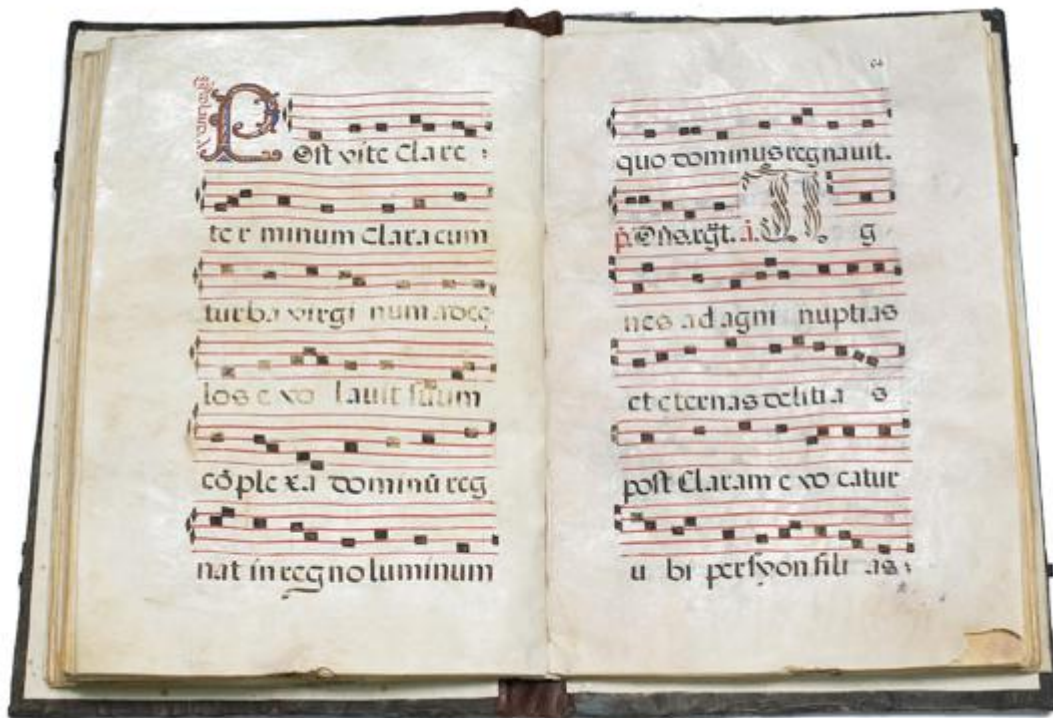 Post vite Clare
ter minum Clara cum
turba virgi num ad ce
los e vo lauit suum
cõple xa dominũ reg
nat in regno luminum
quo dominus regnauit.
A g
nes ad agni nuptias
et eternas delitia s
post Claram e vo catur
u bi per syon fili as